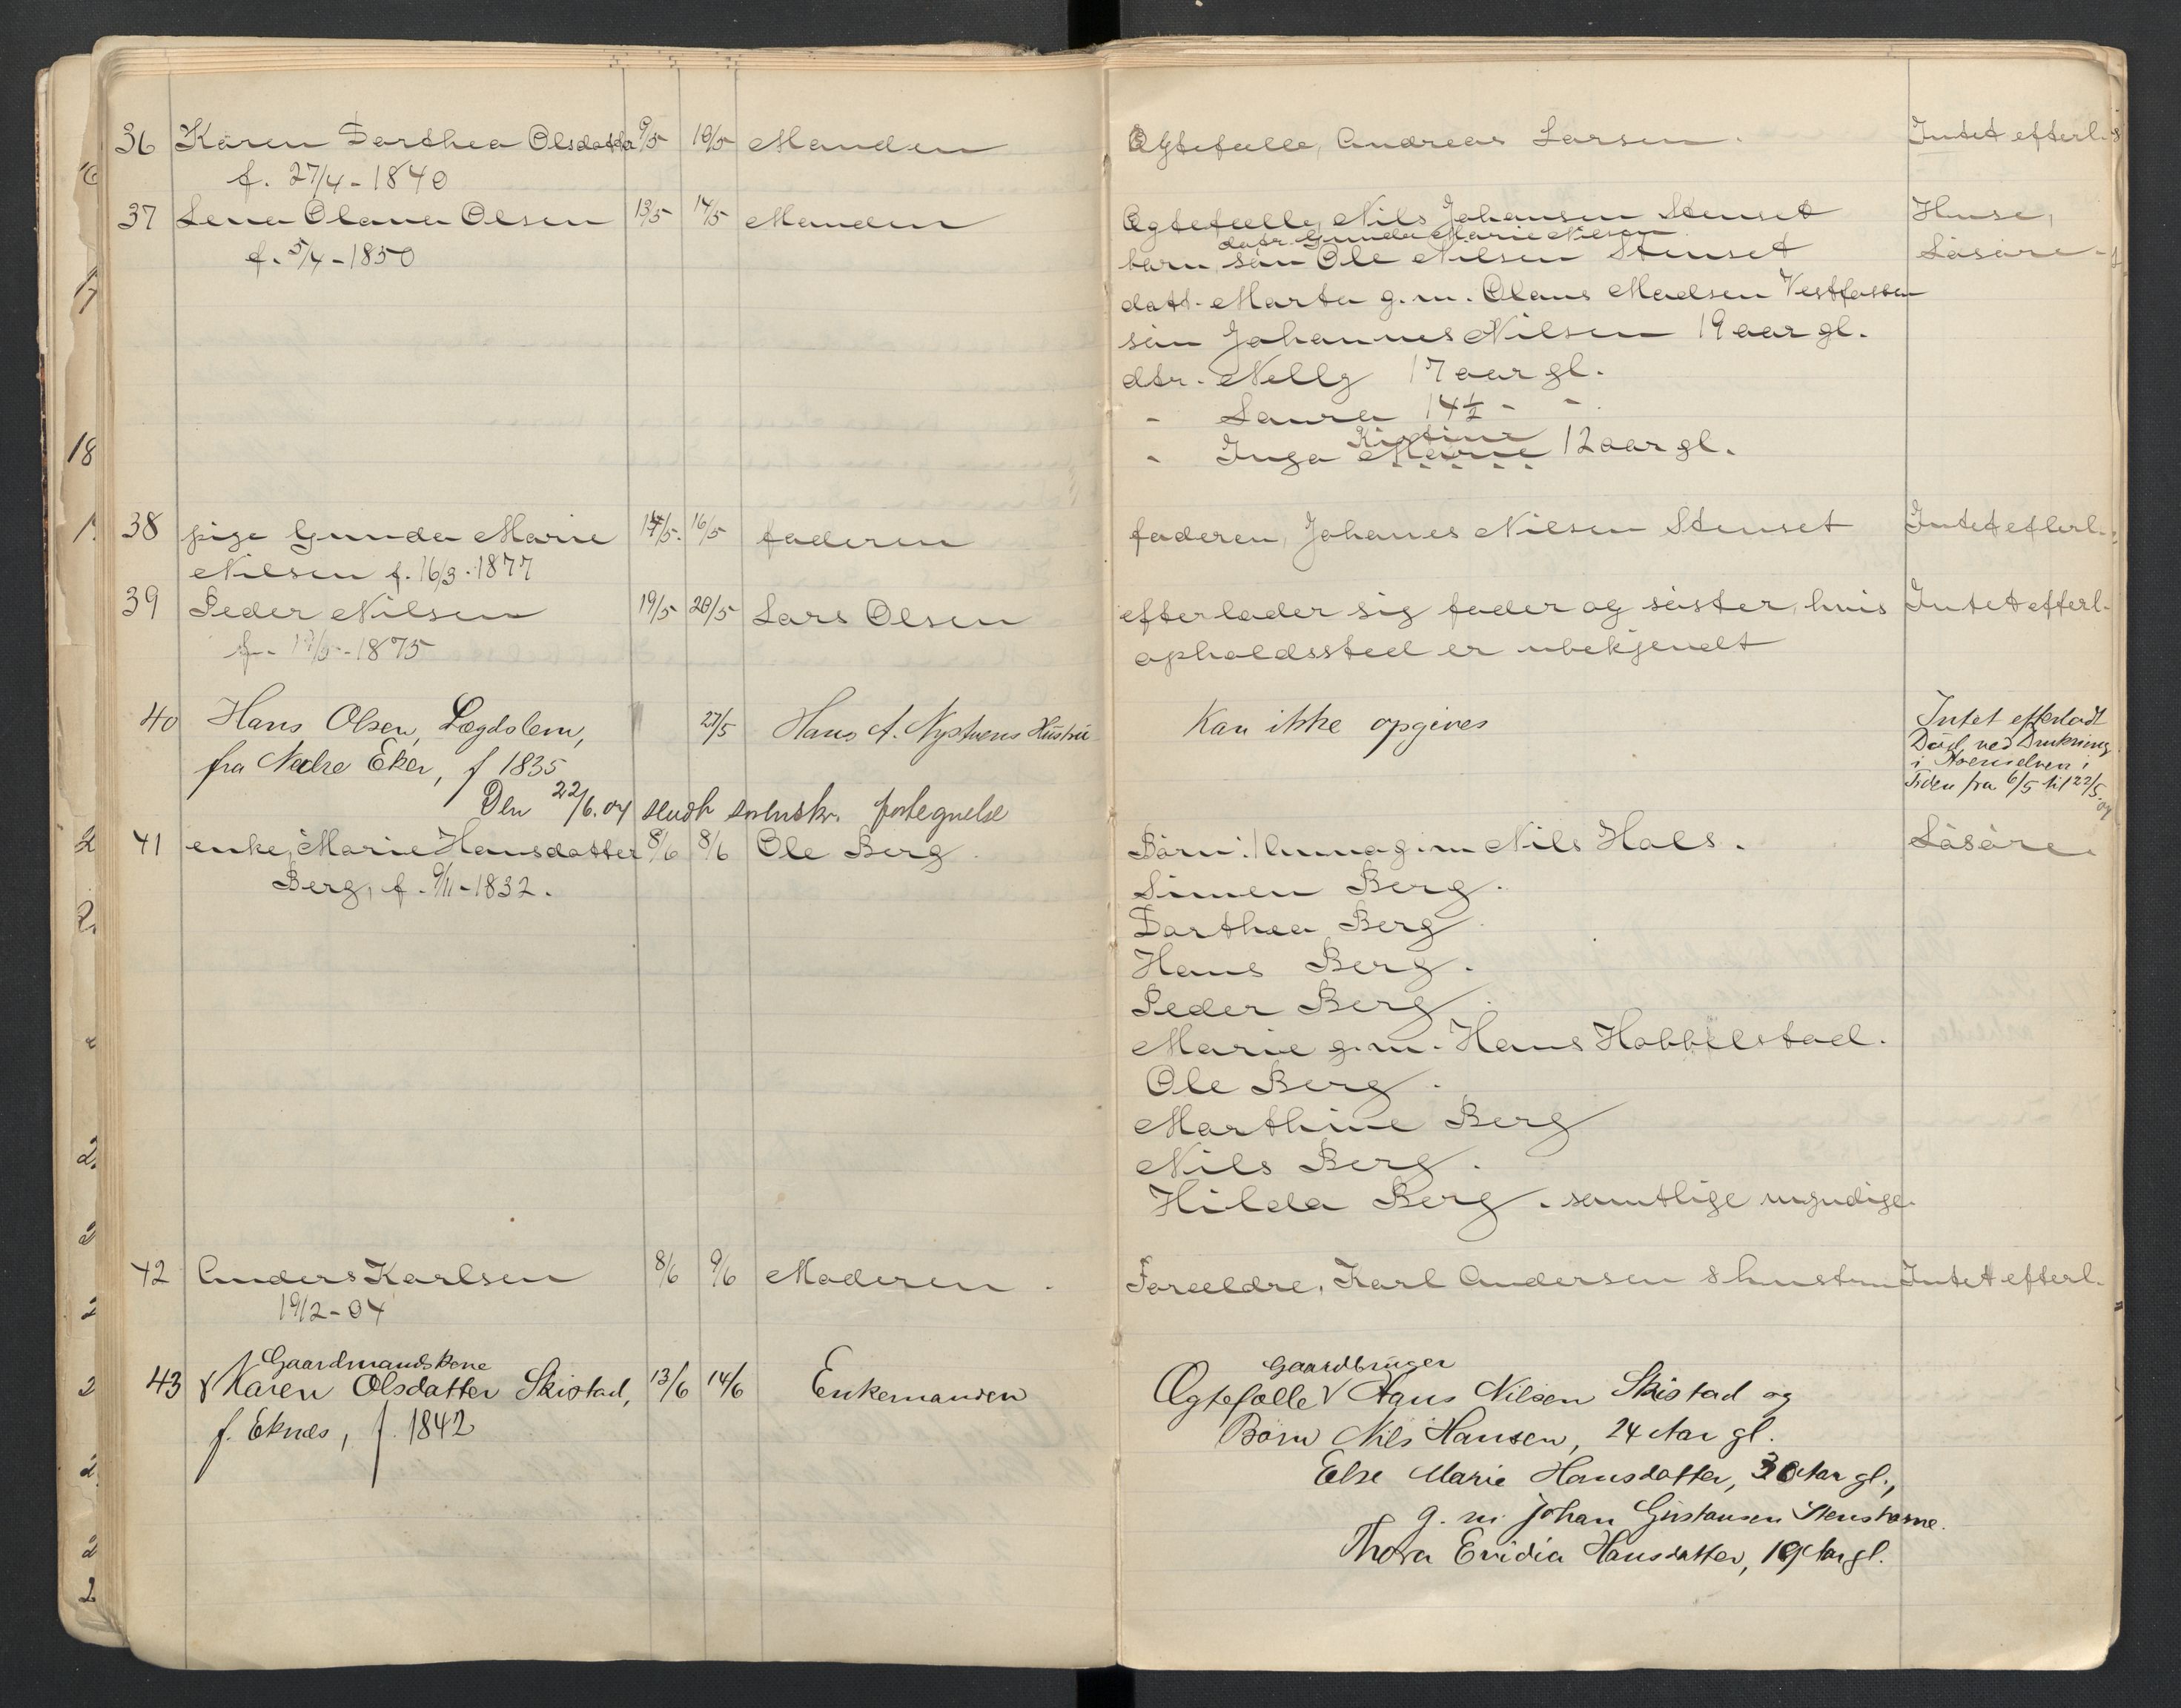 36 Karen Dorthea Olsdatter 9/5 10/5 Manden Ægtefælle, Andreas Larsen. Intet efterl.
f. 27/4-1840
37 Lena Olava Olsen 13/5 14/5 Manden Ægtefælle, Nils Johansen Stenset Huse,
datr. Gunda Marie Nilsen
f. 5/4-1850 børn, søn Ole Nilsen Stenset Løsøre
datt. Marta g. m. Olaus Madsen Vestfossen
søn Johannes Nilsen 19 aar gl.
dtr. Nelly 17 aar gl.
- Laura 14½ - -
Kirstine
- Inga Marie 12 aar gl.
38 pige Gunda Marie 14/5. 16/5 faderen faderen, Johanes Nilsen Stenset Intet efterl.
Nilsen f. 16/3-1877
39 Peder Nilsen 19/5 20/5 Lars Olsen efterlader sig fader og søster, hvis Intet efterl.
f. 1875 opholdssted er ubekjendt
40 Hans Olsen, Lægdslem, 27/5 Hans A. Nystuens Hustru Kan ikke opgives Intet efterladt
fra Nedre Eker, f 1835 Død ved Drukning
i
Tiden fra 6/5 til 22/5 04
Den 22/6.04 sendt fortegnelse
41 enke, Marie Hansdatter 8/6 8/6 Ole Berg Børn: Anna g. m Nils Hals. Løsøre
Berg, f. 9/11-1832.
Simen Berg.
Dorthea Berg
Hans Berg.
Peder Berg.
Marie g. m. Hans Hobbelstad.
Ole Berg.
Marthine Berg
Nils Berg.
Hilda Berg. samtlige myndige.
42 Anders Karlsen 8/6 9/6 Moderen. Forældre, Karl Andersen & hustru Intet efterl.
19/2-04
Gaardmandskone Gaardbruger
43 Karen Olsdatter Skistad, 13/6 14/6 Enkemanden Ægtefælle Hans Nilsen Skistad og
f. Eknes, f. 1842 Børn Nils Hansen, 24 Aar gl.
Else Marie Hansdatter, 30 Aar gl.,
g. m. Johan Gustavsen
Thora Evidia Hansdatter, 19 Aar gl.